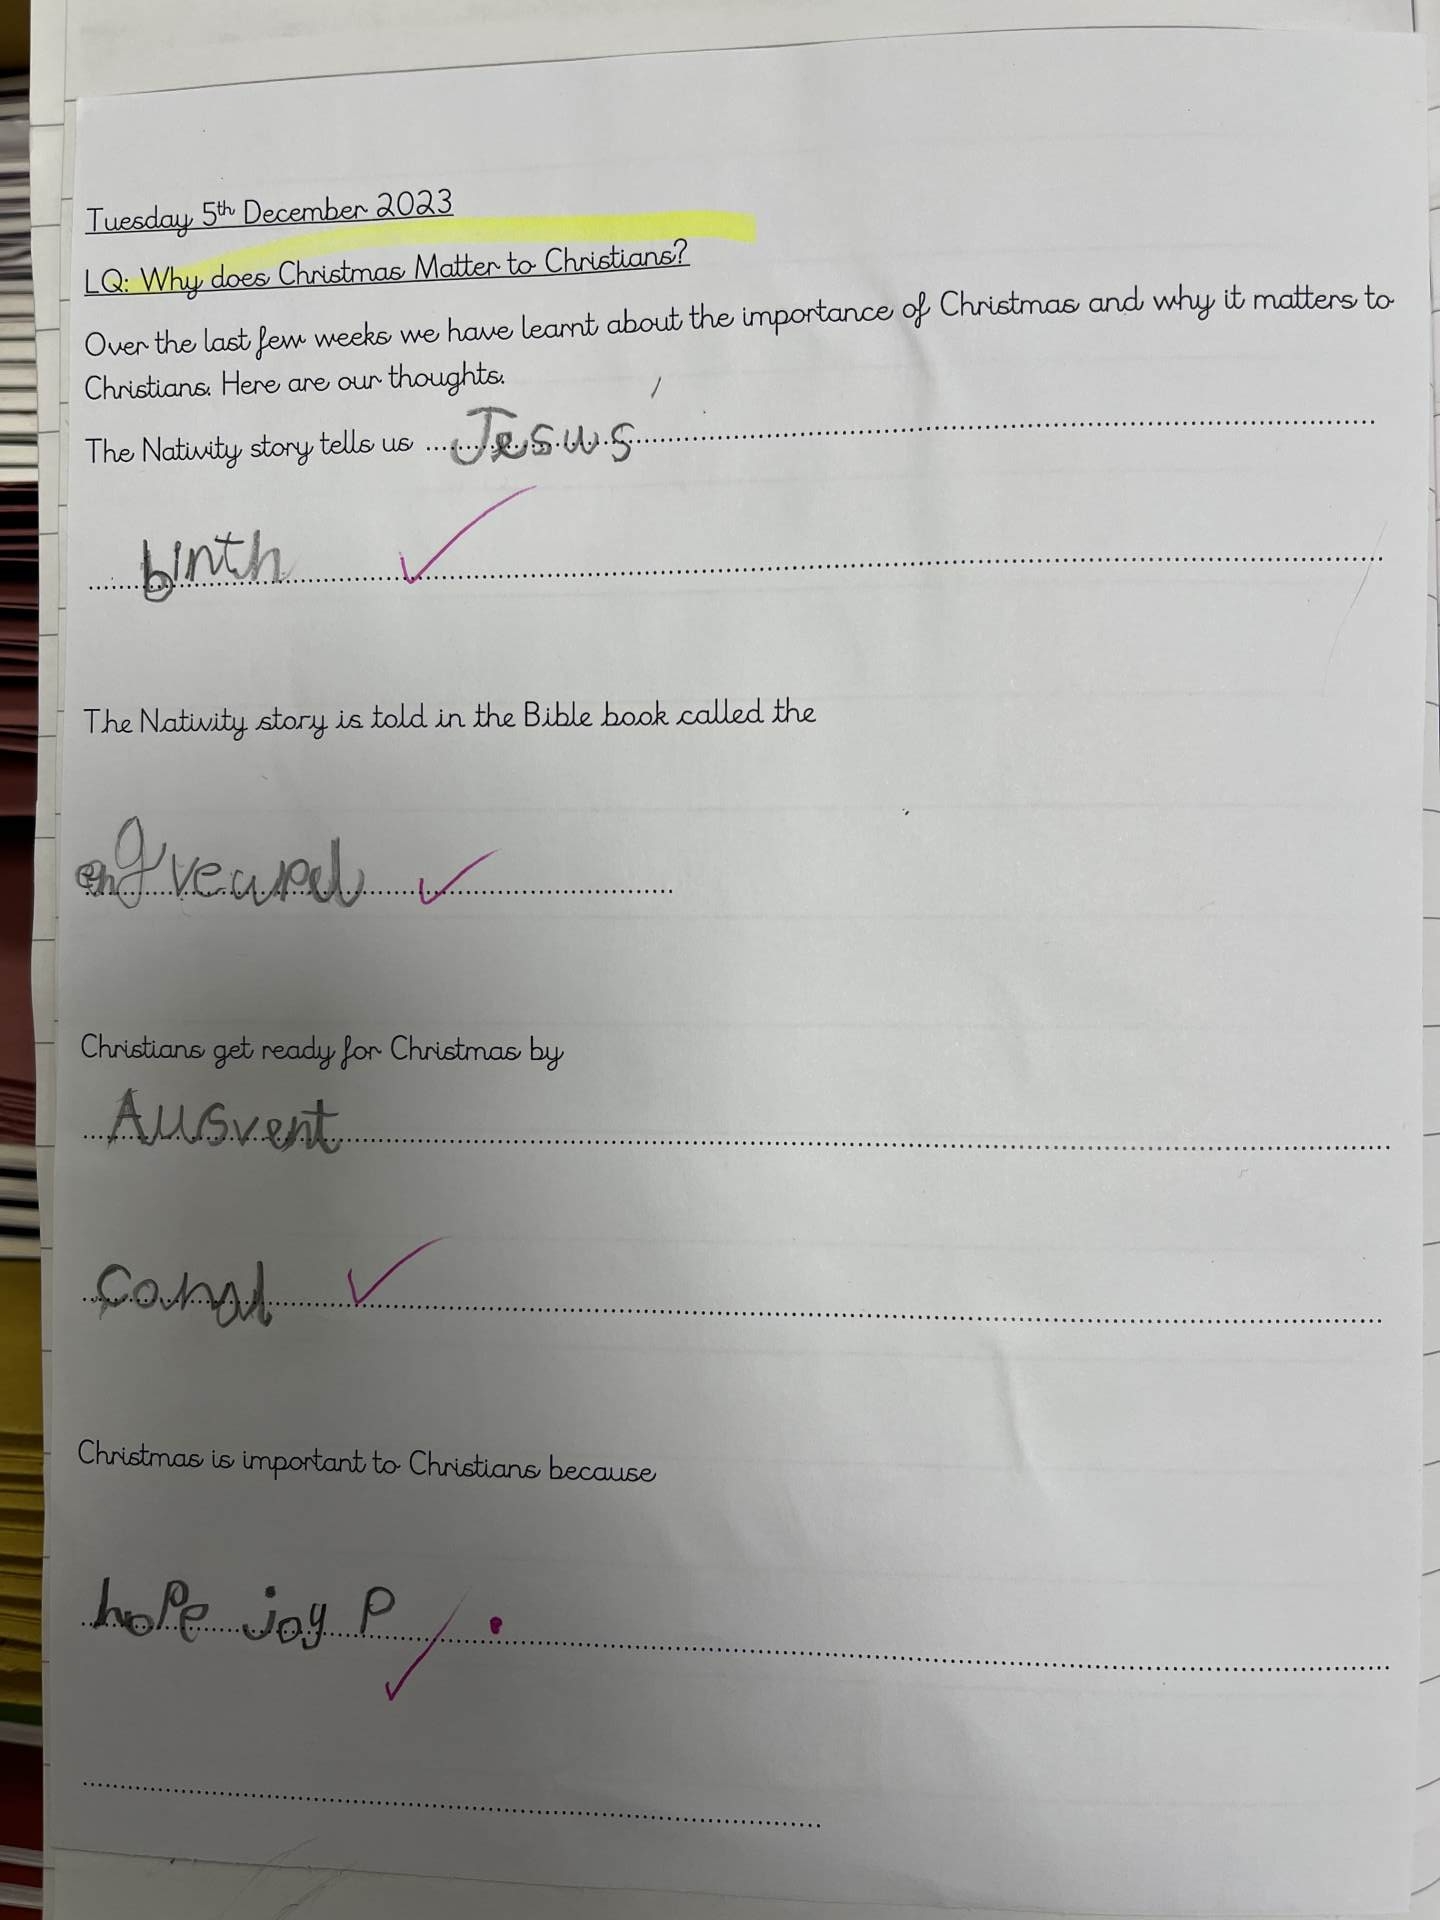 Tuesday 5th December 2023
LQ: Why does Christmas Matter to Christians?
Over the last few weeks we have learnt about the importance of Christmas and why it matters to
Christians. Here are our thoughts.
The Nativity story tells us Jesus
birth
The Nativity story is told in the Bible book called the
Christians get ready for Christmas by
Ausvent
Christmas is important to Christians because
hope joy P